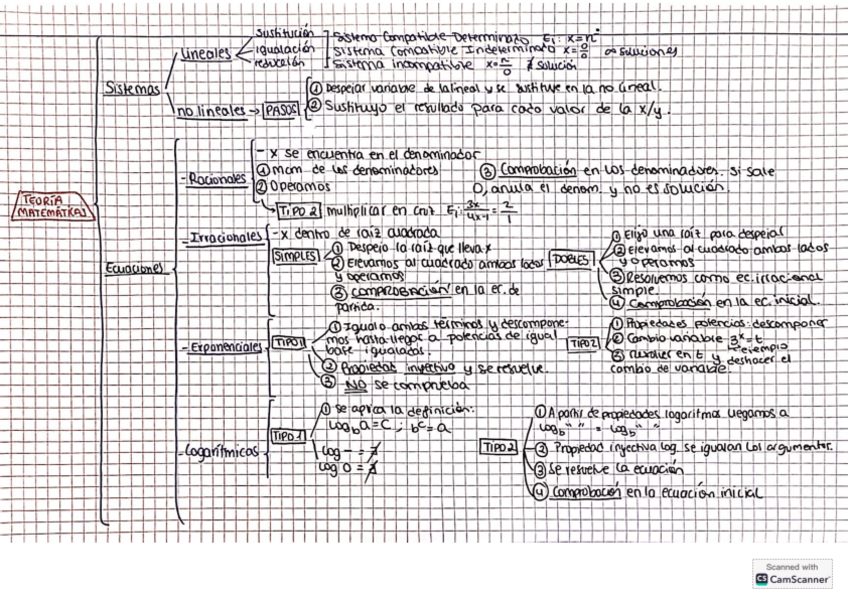 TEORÍA
MATEMÁTICAS
Sistemas
lineales
sustitución
igualación
reducción
Sistema Compatible Determinado Ej: x=nº
Sistema Compatible Indeterminado x=0/0 ∞ soluciones
Sistema incompatible x=n/0 ∄ solución
no lineales → PASOS
① Despejar variable de la lineal y se sustituye en la no lineal.
② Sustituyo el resultado para cada valor de la x/y.
Ecuaciones
- Racionales
- x se encuentra en el denominador
① mcm de los denominadores
② Operamos
③ Comprobación en los denominadores. Si sale
0, anula el denom. y no es solución.
→ TIPO 2 multiplicar en cruz Ej: 3x/4x-1 = 2/1
- Irracionales
- x dentro de raíz cuadrada
SIMPLES
① Despejo la raíz que lleva x
② Elevamos al cuadrado ambos lados
y operamos
③ COMPROBACIÓN en la ec. de
partida.
DOBLES
① Elijo una raíz para despejar
② Elevamos al cuadrado ambos lados
y operamos
③ Resolvemos como ec. irracional
simple.
④ Comprobación en la ec. inicial.
- Exponenciales
TIPO 1
① Igualo ambos términos y descompone-
mos hasta llegar a potencias de igual
base igualadas.
② Propiedad inyectiva y se resuelve.
③ NO se comprueba
TIPO 2
① Propiedades potencias: descomponer
② Cambio variable 3^x = t
→ ejemplo
③ resolver en t y deshacer el
cambio de variable.
- Logarítmicas
TIPO 1
① Se aplica la definición:
log_b a = c ; b^c = a
log - = ∄
log 0 = ∄
TIPO 2
① A partir de propiedades logaritmos llegamos a
log_b " " = log_b " "
② Propiedad inyectiva log. se igualan los argumentos.
③ Se resuelve la ecuación
④ Comprobación en la ecuación inicial
Scanned with
CS CamScanner